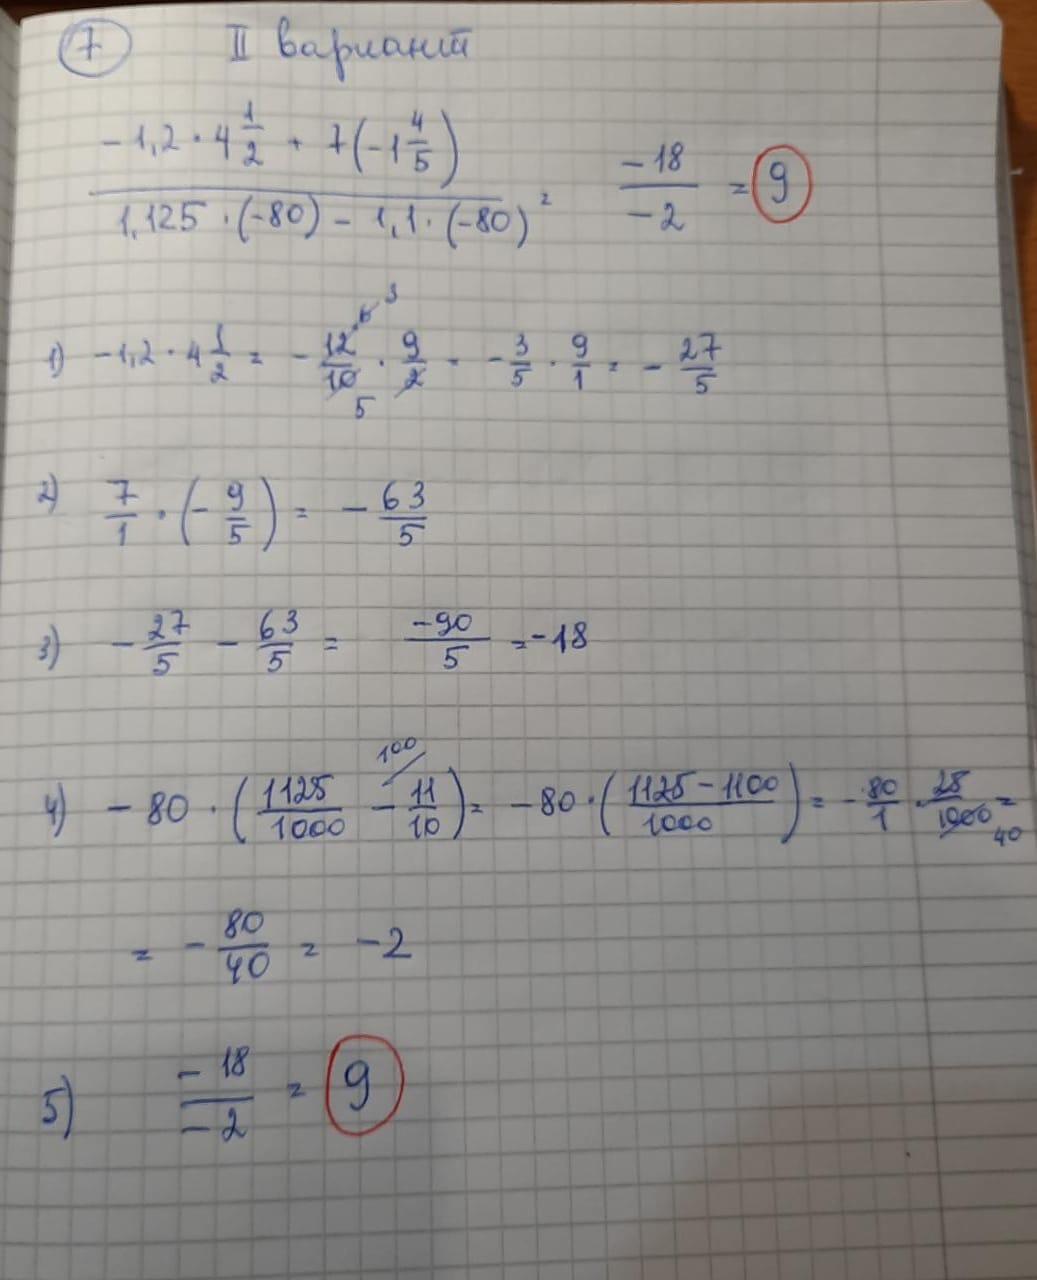 7 II вариант
(-1,2 · 4 1/2 + 7(-1 4/5)) / (1,125 · (-80) - 1,1 · (-80)) = -18/-2 = 9
1) -1,2 · 4 1/2 = - 12/10 · 9/2 = - 3/5 · 9/1 = - 27/5
6 3
5
2) 7/1 · (- 9/5) = - 63/5
3) - 27/5 - 63/5 = -90/5 = -18
100
4) - 80 · (1125/1000 - 11/10) = -80 · ((1125 - 1100)/1000) = - 80/1 · 25/1000 =
40
= - 80/40 = -2
5) -18/-2 = 9